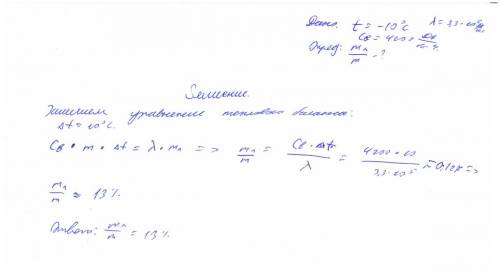 Дано: t = -10°C λ = 3,3·10⁵
Cв = 4200 Дж/кг·°C
Опред: mл/m - ?
Решение.
Запишем уравнение теплового баланса:
Δt = 10°C.
Cв · m · Δt = λ · mл => mл/m = Cв · Δt/λ = 4200 · 10/3,3 · 10⁵ ≈ =>
mл/m ≈ 13%
Ответ: mл/m = 13%